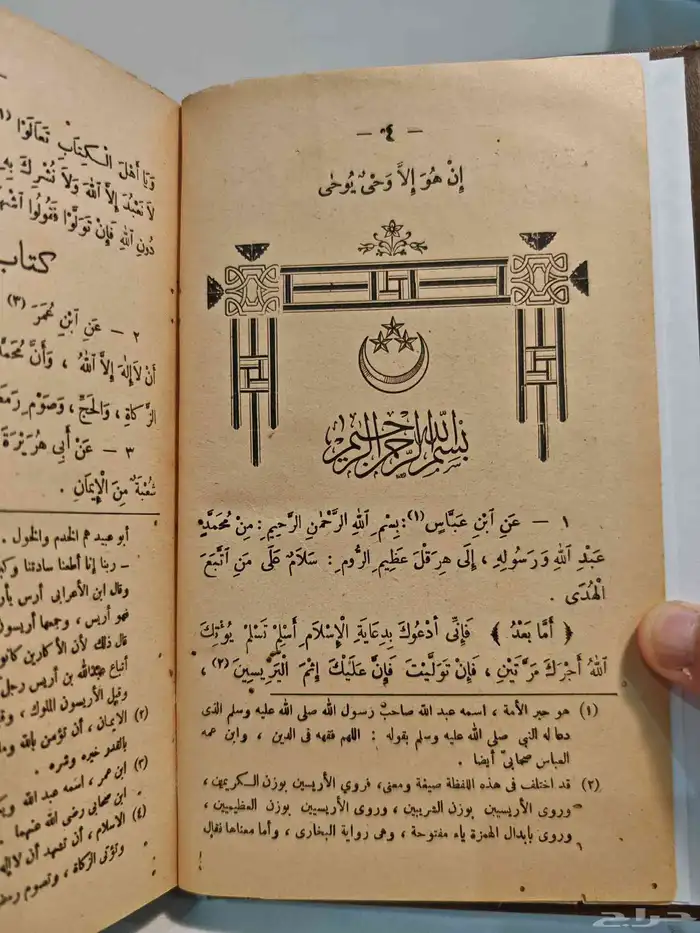 — ٤ —
إِنْ هُوَ إِلاَّ وَحْىٌ يُوحَى
بسم الله الرحمن الرحيم
١ — عَنِ ابْنِ عَبَّاسٍ (١): بِسْمِ اللهِ الرَّحْمٰنِ الرَّحِيمِ: مِنْ مُحَمَّدٍ
عَبْدِ اللهِ وَرَسُولِهِ، إِلَى هِرَقْلَ عَظِيمِ الرُّومِ: سَلاَمٌ عَلَى مَنِ اتَّبَعَ
الْهُدَى.
﴿ أَمَّا بَعْدُ ﴾ فَإِنِّى أَدْعُوكَ بِدِعَايَةِ الْإِسْلاَمِ أَسْلِمْ تَسْلَمْ يُؤْتِكَ
اللهُ أَجْرَكَ مَرَّتَيْنِ، فَإِنْ تَوَلَّيْتَ فَإِنَّ عَلَيْكَ إِثْمَ الْيَرِيسِيِّينَ (٢)،
(١) هو حبر الأمة، اسمه عبد الله صاحب رسول الله صلى الله عليه وسلم الذى
دعا له النبي صلى الله عليه وسلم بقوله: اللهم فقهه فى الدين، وابن عمه
العباس صحابىّ أيضا.
(٢) قد اختلف فى هذه اللفظة صيغة ومعنى، فروي الأريسين بوزن الكريمين،
وروى الأريسيين بوزن الشريبين، وروى الأريسيين بوزن العظيميين،
وروى بابدال الهمزة ياء مفتوحة، وهى رواية البخارى، وأما معناها فقال
وَيَا أَهْلَ الْكِتَابِ تَعَالَوْا
لاَ نَعْبُدَ إِلاَّ اللهَ وَلاَ نُشْرِكَ بِهِ
دُونِ اللهِ فَإِنْ تَوَلَّوْا فَقُولُوا
كتاب
٢ — عَنِ ابْنِ عُمَرَ (٣)
أَنْ لاَ إِلٰهَ إِلاَّ اللهُ، وَأَنَّ
الزَّكَاةِ، وَالْحَجِّ، وَصَوْمِ
٣ — عَنْ أَبِى هُرَيْرَةَ
شُعْبَةٌ مِنَ الْإِيمَانِ.
أبو عبيد هم الخدم والخول.
— ربنا إنا أطعنا سادتنا
وقال ابن الأعرابى أرس
فهو أريس، وجمعها أريسون
قال ذلك لأن الأكارين
أتباع عبدالله بن أريس رجل
وقيل الأريسون الملوك،
(٢) الايمان، أن تؤمن بالله
بالقدر خيره وشره.
(٣) ابن عمر، اسمه عبد الله
ابن صحابى رضى الله عنهما.
(٤) الاسلام، أن تشهد أن لا إله
وتؤتى الزكاة، وتصوم
حراج